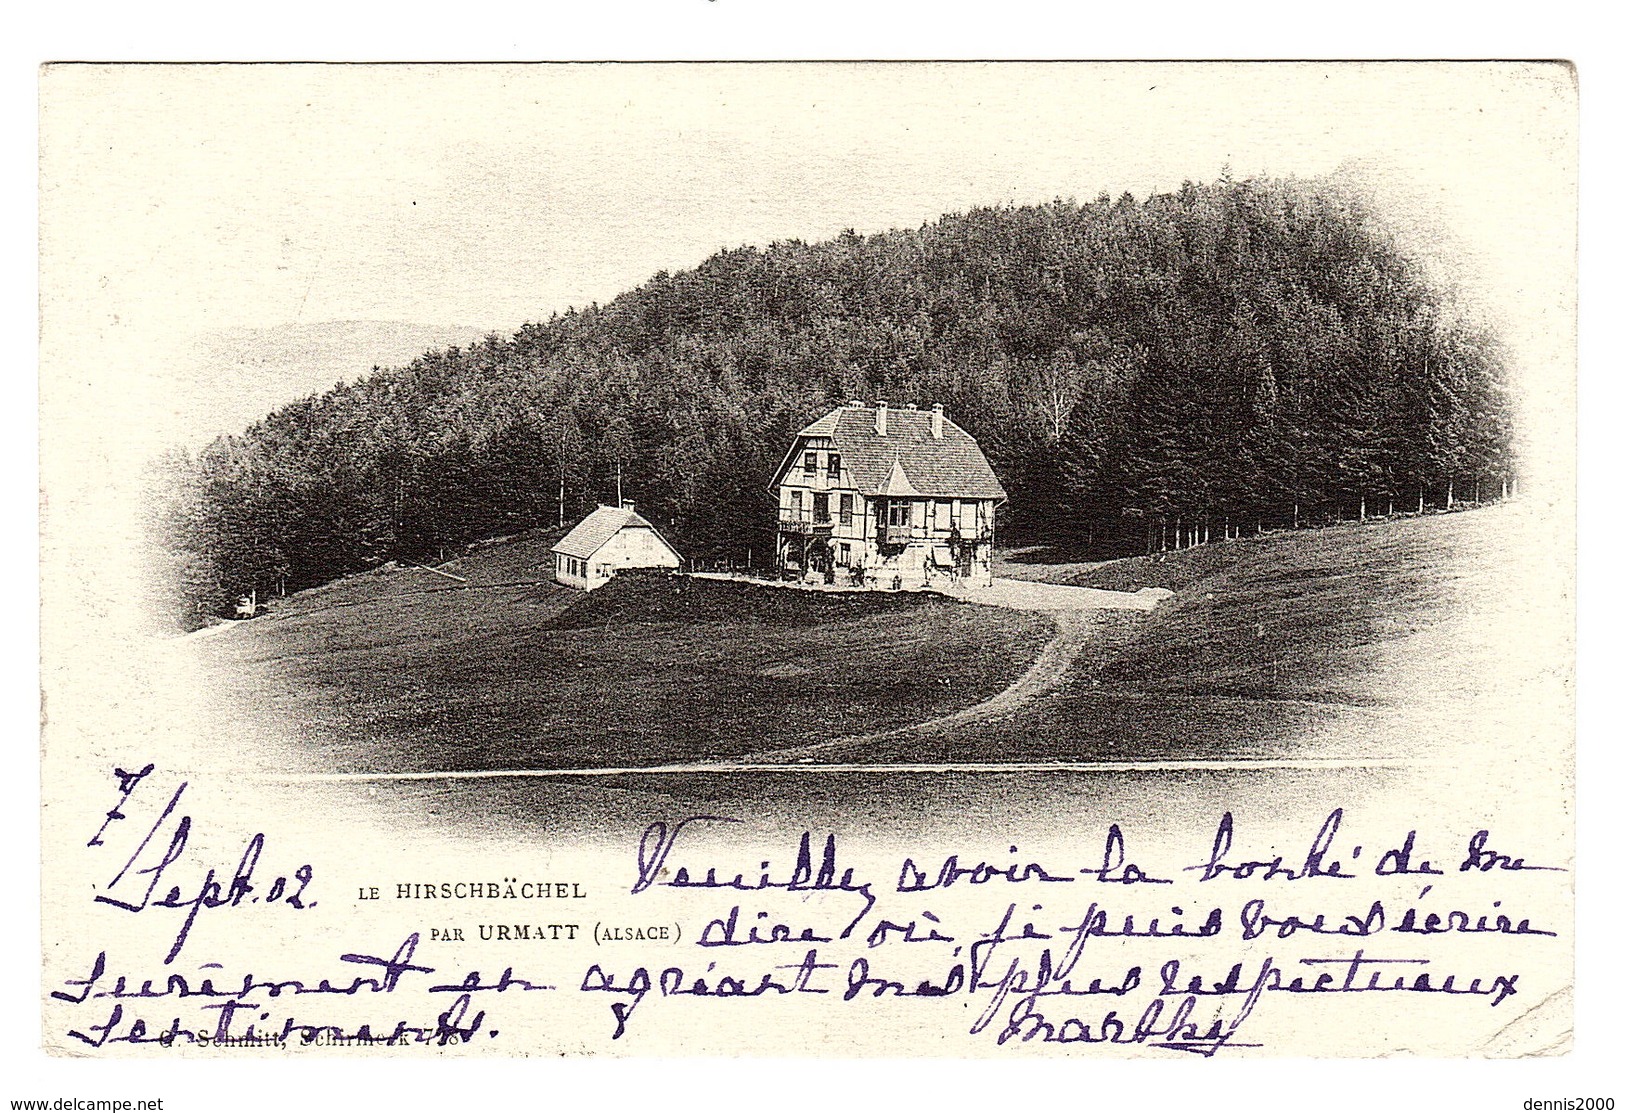 7/Sept. 02.
LE HIRSCHBÄCHEL
PAR URMATT (ALSACE)
Veuillez avoir la bonté de me
dire où je puis vous écrire
surêment en agréant mes plus respectueux
sentiments.
Marthy
G. Schmitt, Schirmeck
www.delcampe.net
dennis2000